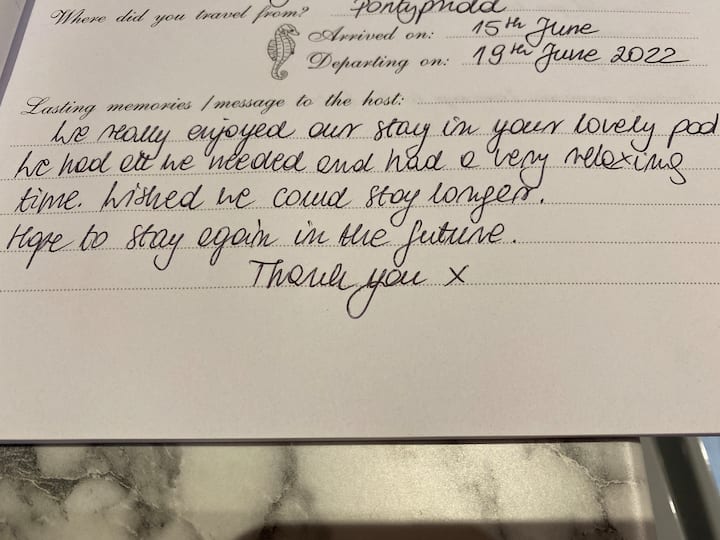 Where did you travel from? Pontypridd
Arrived on: 15th June
Departing on: 19th June 2022
Lasting memories / message to the host:
We really enjoyed our stay in your lovely pod
We had all we needed and had a very relaxing
time. Wished we could stay longer.
Hope to stay again in the future.
Thank you x